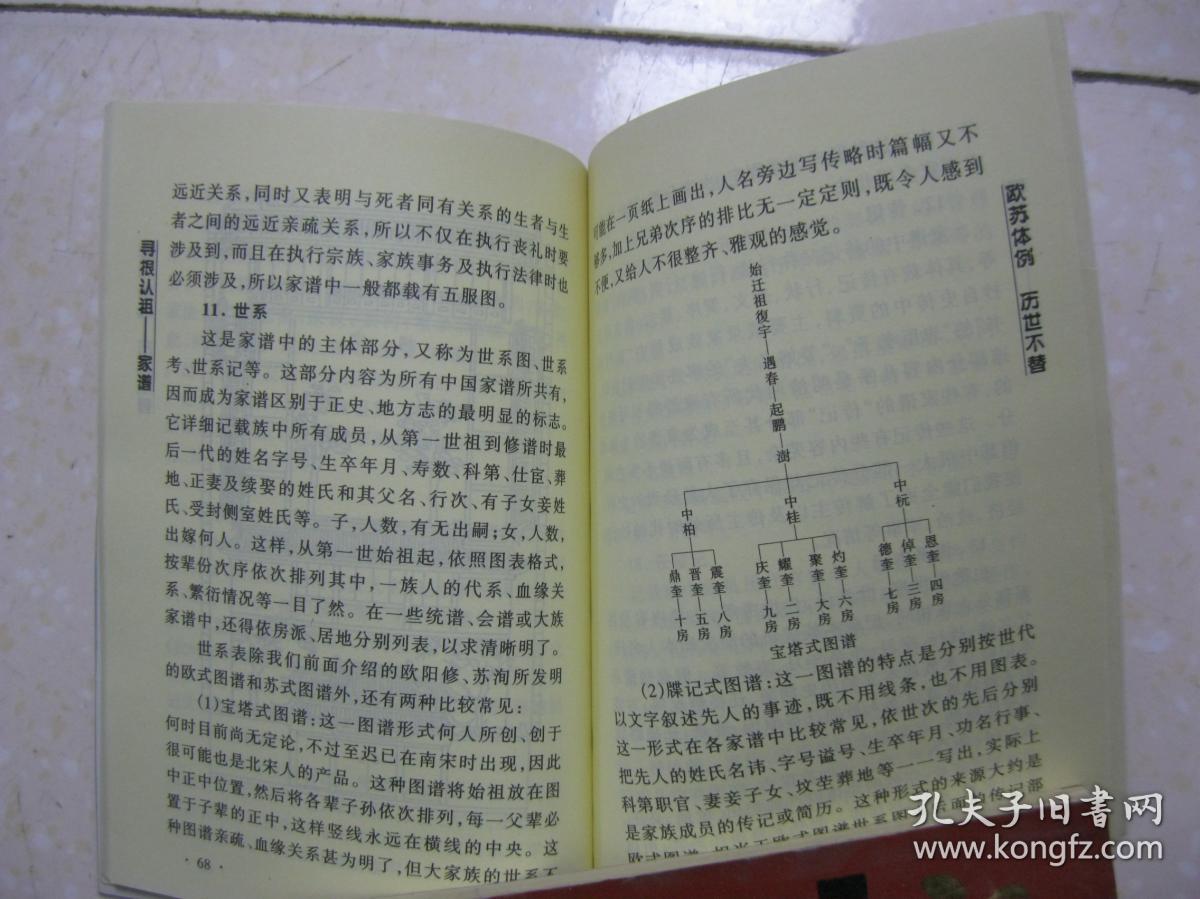 寻根认祖——家谱
远近关系,同时又表明与死者同有关系的生者与生
者之间的远近亲疏关系,所以不仅在执行丧礼时要
涉及到,而且在执行宗族、家族事务及执行法律时也
必须涉及,所以家谱中一般都载有五服图。
11. 世系
这是家谱中的主体部分,又称为世系图、世系
考、世系记等。这部分内容为所有中国家谱所共有,
因而成为家谱区别于正史、地方志的最明显的标志。
它详细记载族中所有成员,从第一世祖到修谱时最
后一代的姓名字号、生卒年月、寿数、科第、仕宦、葬
地、正妻及续娶的姓氏和其父名、行次、有子女妾姓
氏、受封侧室姓氏等。子,人数,有无出嗣;女,人数,
出嫁何人。这样,从第一世始祖起,依照图表格式,
按辈份次序依次排列其中,一族人的代系、血缘关
系、繁衍情况等一目了然。在一些统谱、会谱或大族
家谱中,还得依房派、居地分别列表,以求清晰明了。
世系表除我们前面介绍的欧阳修、苏洵所发明
的欧式图谱和苏式图谱外,还有两种比较常见:
(1)宝塔式图谱:这一图谱形式何人所创、创于
何时目前尚无定论,不过至迟已在南宋时出现,因此
很可能也是北宋人的产品。这种图谱将始祖放在图
中正中位置,然后将各辈子孙依次排列,每一父辈必
置于子辈的正中,这样竖线永远在横线的中央。这
种图谱亲疏、血缘关系甚为明了,但大家族的世系不
· 68 ·
可能在一页纸上画出,人名旁边写传略时篇幅又不
够多,加上兄弟次序的排比无一定定则,既令人感到
不便,又给人不很整齐、雅观的感觉。
欧苏体例 历世不替
始迁祖復宇—遇春—起鹏—澍
中柏
中桂
中杬
鼎奎—十房
晋奎—五房
震奎—八房
庆奎—九房
耀奎—二房
聚奎—大房
灼奎—六房
德奎—七房
倬奎—三房
恩奎—四房
宝塔式图谱
(2)牒记式图谱:这一图谱的特点是分别按世代
以文字叙述先人的事迹,既不用线条,也不用图表。
这一形式在各家谱中比较常见,依世次的先后分别
把先人的姓氏名讳、字号谥号、生卒年月、功名行事、
科第职官、妻妾子女、坟茔葬地等一一写出,实际上
是家族成员的传记或简历。这种形式的来源大约是
欧式图谱,相当于欧式图谱世系图
的传记部
孔夫子旧书网
www.kongfz.com